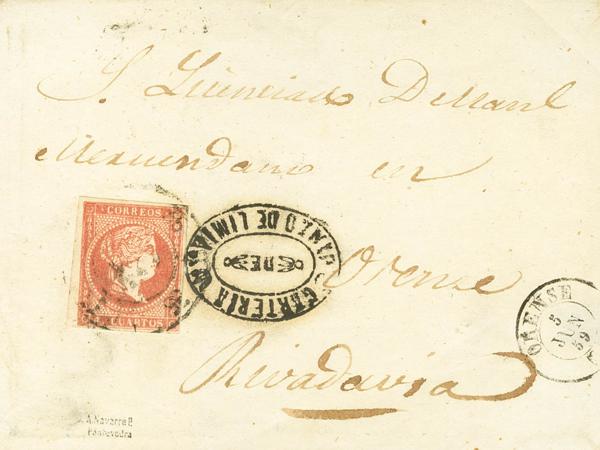 S. Licenciado D. Manl
Meruendano en
Orense
Rivadavia
CORREOS
CUATROS
CARTERIA
DE
GINZO DE LIMIA
ORENSE
5
JUN
59
A. Navarro P.
Pontevedra